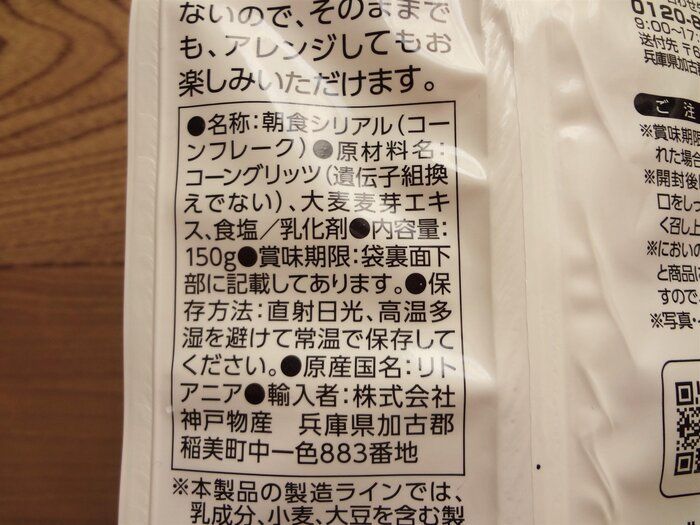 ないので、そのままでも
も、アレンジしてもお
楽しみいただけます。
●名称：朝食シリアル（コー
ンフレーク）●原材料名：
コーングリッツ（遺伝子組換
えでない）、大麦麦芽エキ
ス、食塩／乳化剤●内容量：
150g●賞味期限：袋裏面下
部に記載してあります。●保
存方法：直射日光、高温多
湿を避けて常温で保存して
ください。●原産国名：リト
アニア●輸入者：株式会社
神戸物産　兵庫県加古郡
稲美町中一色883番地
※本製品の製造ラインでは、
乳成分、小麦、大豆を含む製
0120-
9:00～17:
送付先 〒6
兵庫県加古
ご注
※賞味期限
れた場合
※開封後
口をしっ
く召し上
※においの
と商品に
すので
※写真・